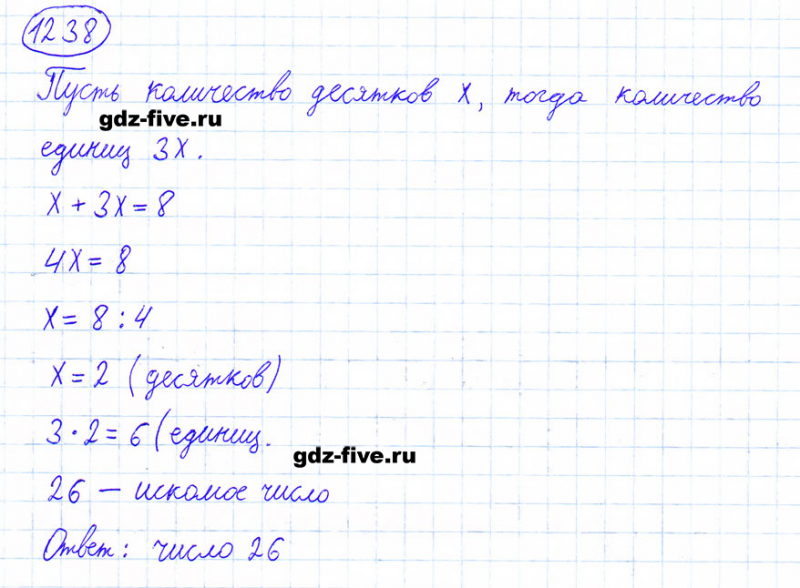 1238
Пусть количество десятков x, тогда количество
gdz-five.ru
единиц 3x.
x + 3x = 8
4x = 8
x = 8 : 4
x = 2 (десятков)
3 · 2 = 6 (единиц.
gdz-five.ru
26 — искомое число
Ответ: число 26